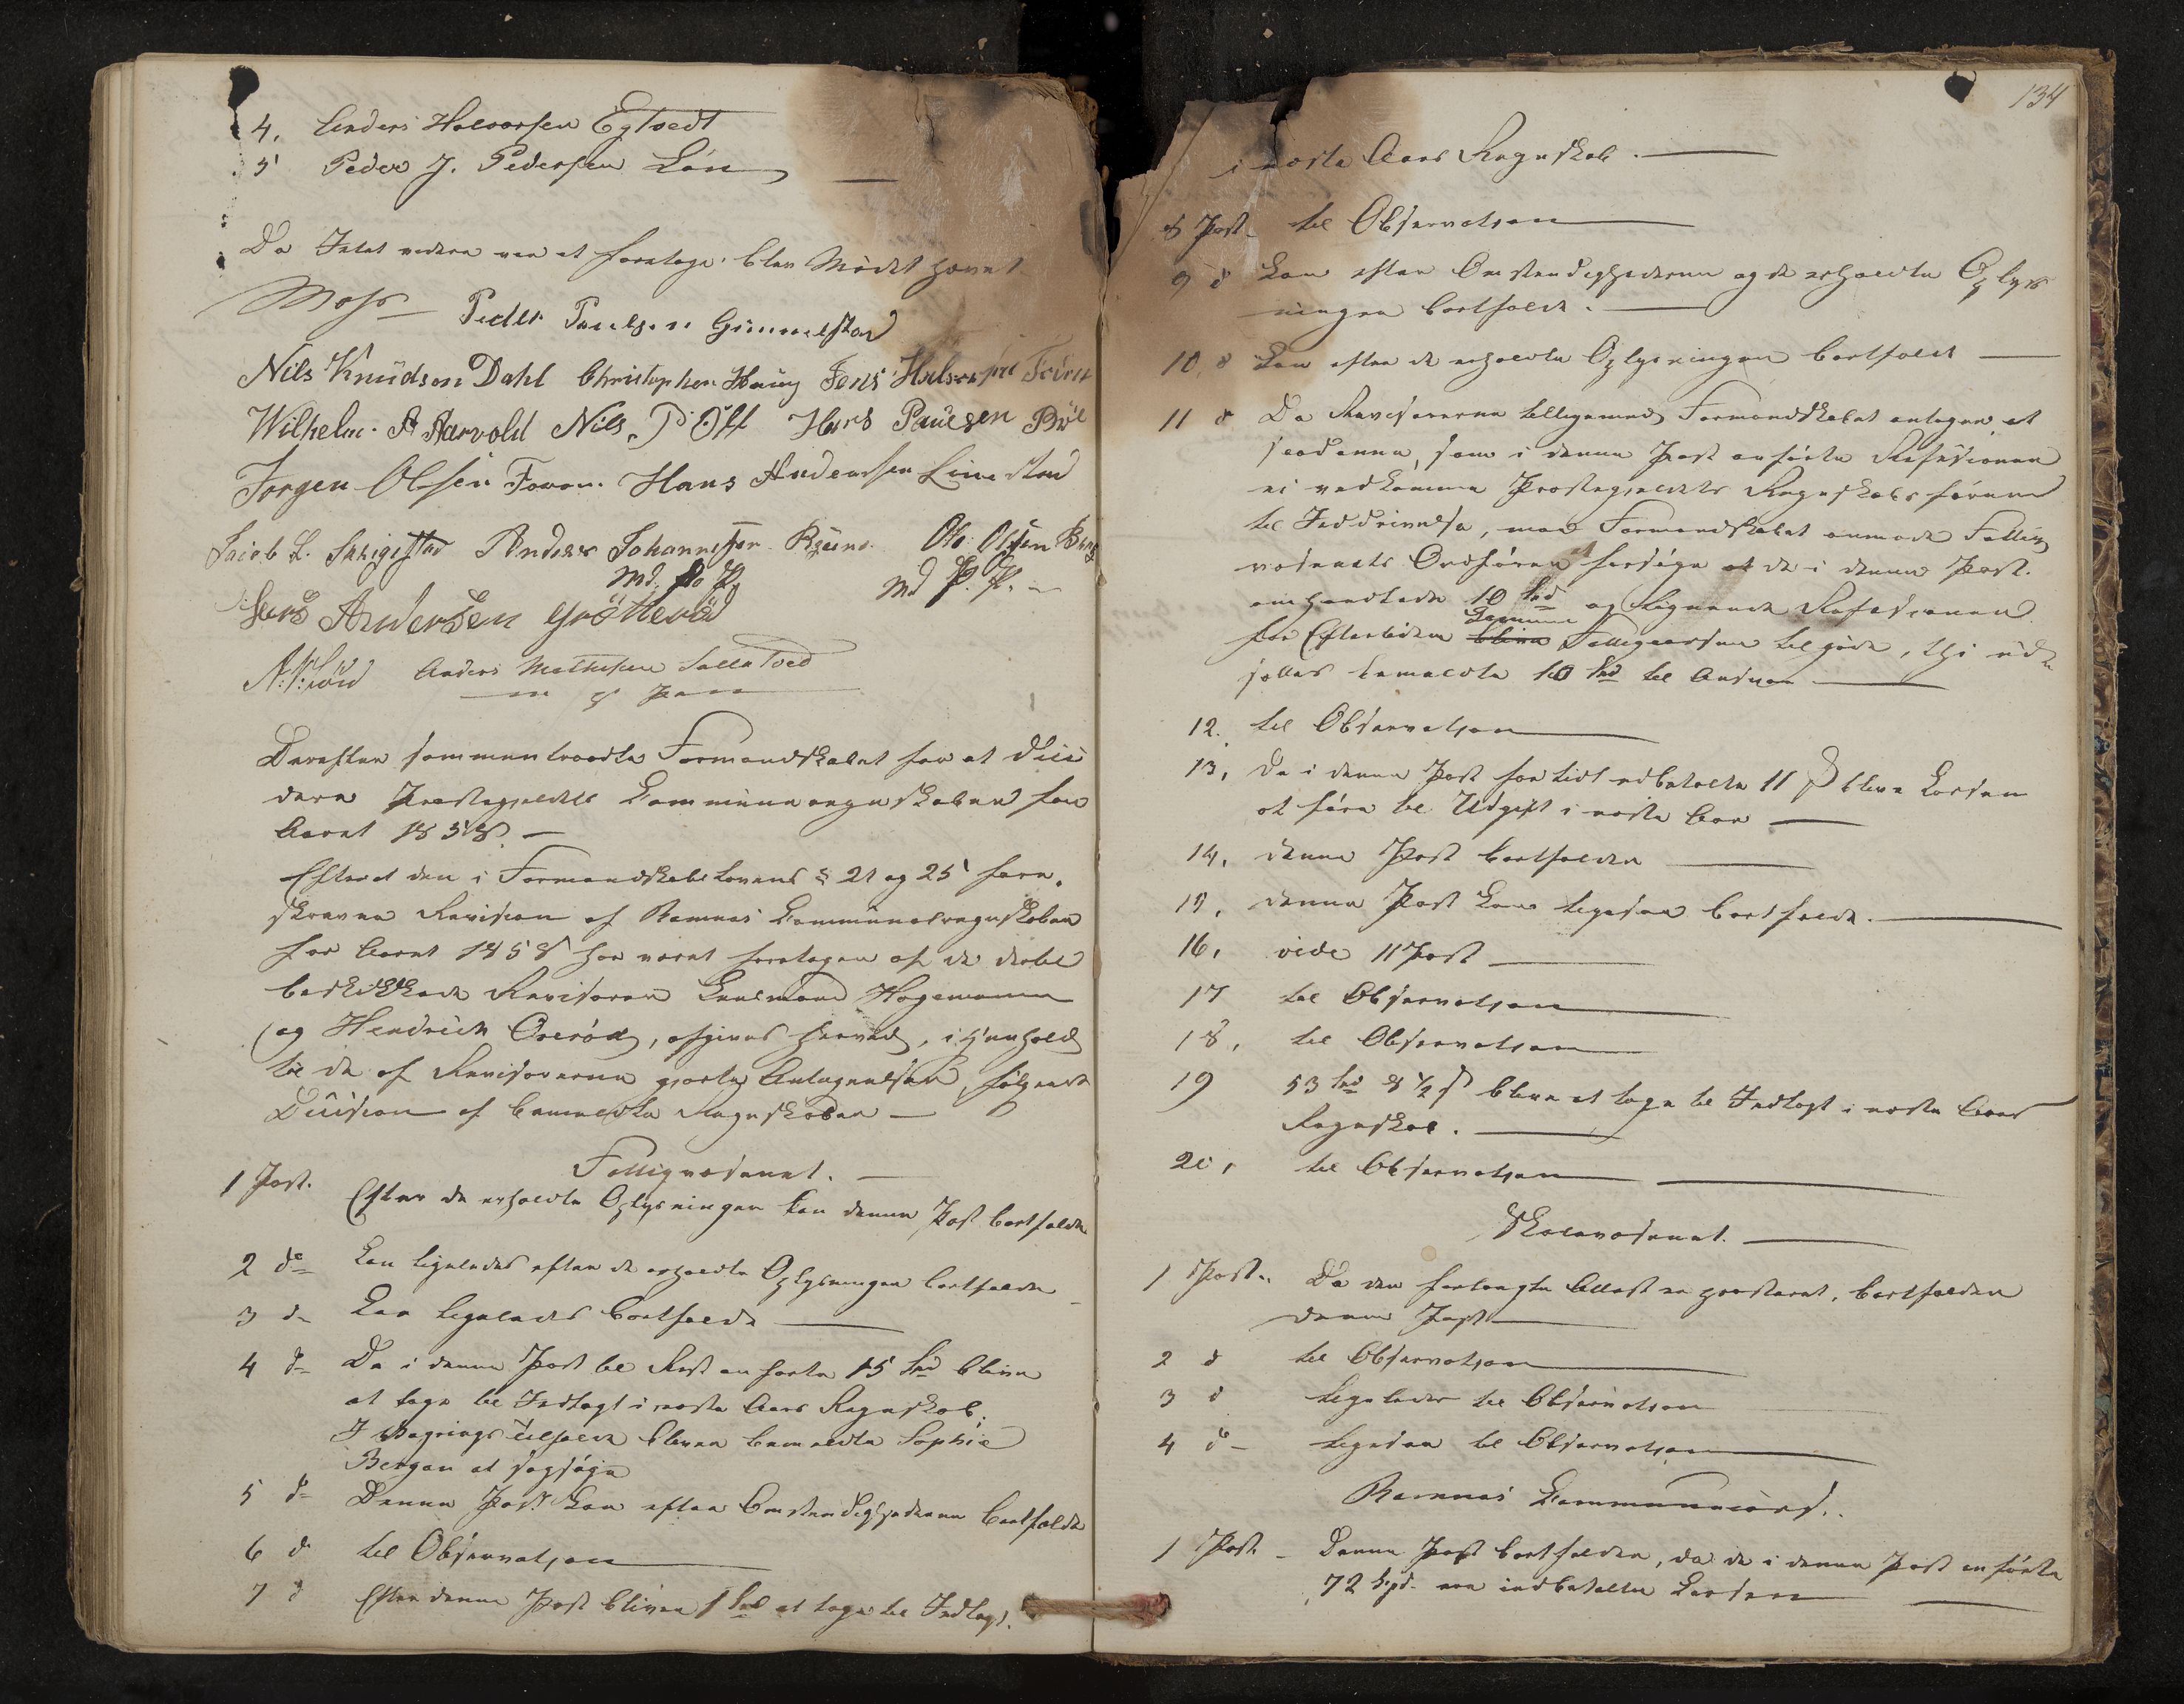 4. Anders Halvorsen Egtvedt
5 Peder J. Pedersen Lön
Da Intet videre var at foretage blev Mødet hævet
Moss Peder Paulsen Gimmelstad
Nils Knüdson Dahl Christopher Haug Jens Halvorsen
Wilhelm A Aarvold Nils P Oft Hans Paulsen
Jörgen Olsen Hans Andersen Linnestad
Jacob L. Anders Johannesen Ole Olsen
md. P. P. md P. P.
Andersen Grötteröd
Anders Mathisen
m p Pen
Derefter sammentraadte Formandskabet for at deci
dere Præstegjeldets Communeregnskaber for
Aaret 1858. —
Efterat den i Formandskabslovens § 21 og 25 fore,
skrevne Revision af Ramnes Communeregnskaber
for Aaret 1858 har været foretagen af de dertil
beskikkede Revisorer Lensmand Hagemann
og Hendrich Overöd, afgives herved, i Henhold
til de af Revisorerne gjorte Antegnelser, følgende
Decision af bemeldte Regnskaber —
Fattigvæsenet. —
1 Post. Efter de erholdte Oplysninger kan denne Post bortfalde
2 do Kan ligeledes efter de erholdte Oplysninger bortfalde
3 do Kan ligeledes bortfalde
4 do Da i denne Post til Rest anførte 15 Spd bliver
at tage til Indtægt i næste Aars Regnskab.
I Vægrings Tilfælde bliver bemeldte Sophie
Bergan at sagsöge
5 do Denne Post kan efter Omstændighederne bortfalde
6 do til Observation
7 do Efter denne Post bliver 1 Spd at tage til Indtægt
134
i næste Aars Regnskab. —
8 Post til Observation
9 do Kan efter Omstændighederne og de erholdte Oplys
ninger bortfalde. —
10 do Kan efter de erholdte Oplysninger bortfalde —
11 do Da Revisorerne tilligemed Formandskabet antager, at
saadanne, som i denne Post anførte Refusioner
ei vedkomme Præstegjeldets Regnskabsförere
til Inddrivelse, maa Formandskabet anmode Fattig
væsenets Ordförer at forsöge at de i denne Post
omhandlede 10 Spd og lignende Refusioner
for Eftertiden komme Fattigcassen tilgode, thi
sættes bemeldte 10 Spd til Ansvar
12. til Observation
13, De i denne Post for lidt udbetalte 11 ß blive Cassen
at före til Udgift i næste Aar —
14, denne Post bortfalder
15, denne Post kan ligesaa bortfalde. —
16, vide 11 Post
17 til Observation
18, til Observation
19 53 Spd 8 1/2 ß blive at tage til Indtægt i næste Aars
Regnskab. —
20, til Observation
Skolevæsenet. —
1 Post. Da den forlangte Attest er præsteret, bortfalder
denne Post
2 do til Observation
3 do ligeledes til Observation
4 do ligesaa til Observation
Ramnes
1 Post — Denne Post bortfalder, da de i denne Post anförte
72 Spd. ere indbetalte Cassen